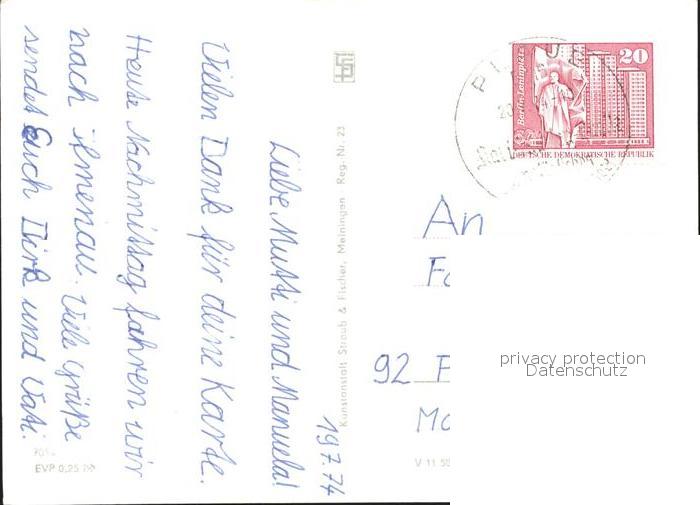 19.7.74
Liebe Mutti und Manuela!
Vielen Dank für deine Karte.
Heute Nachmittag fahren wir
nach Ilmenau. Viele Grüße
sendet Euch Dirk und Vati.
Kunstanstalt Straub & Fischer, Meiningen Reg.-Nr. 23
EVP 0,25
V 11 50
Berlin-Leninplatz
20
DEUTSCHE DEMOKRATISCHE REPUBLIK
An
92
privacy protection
Datenschutz